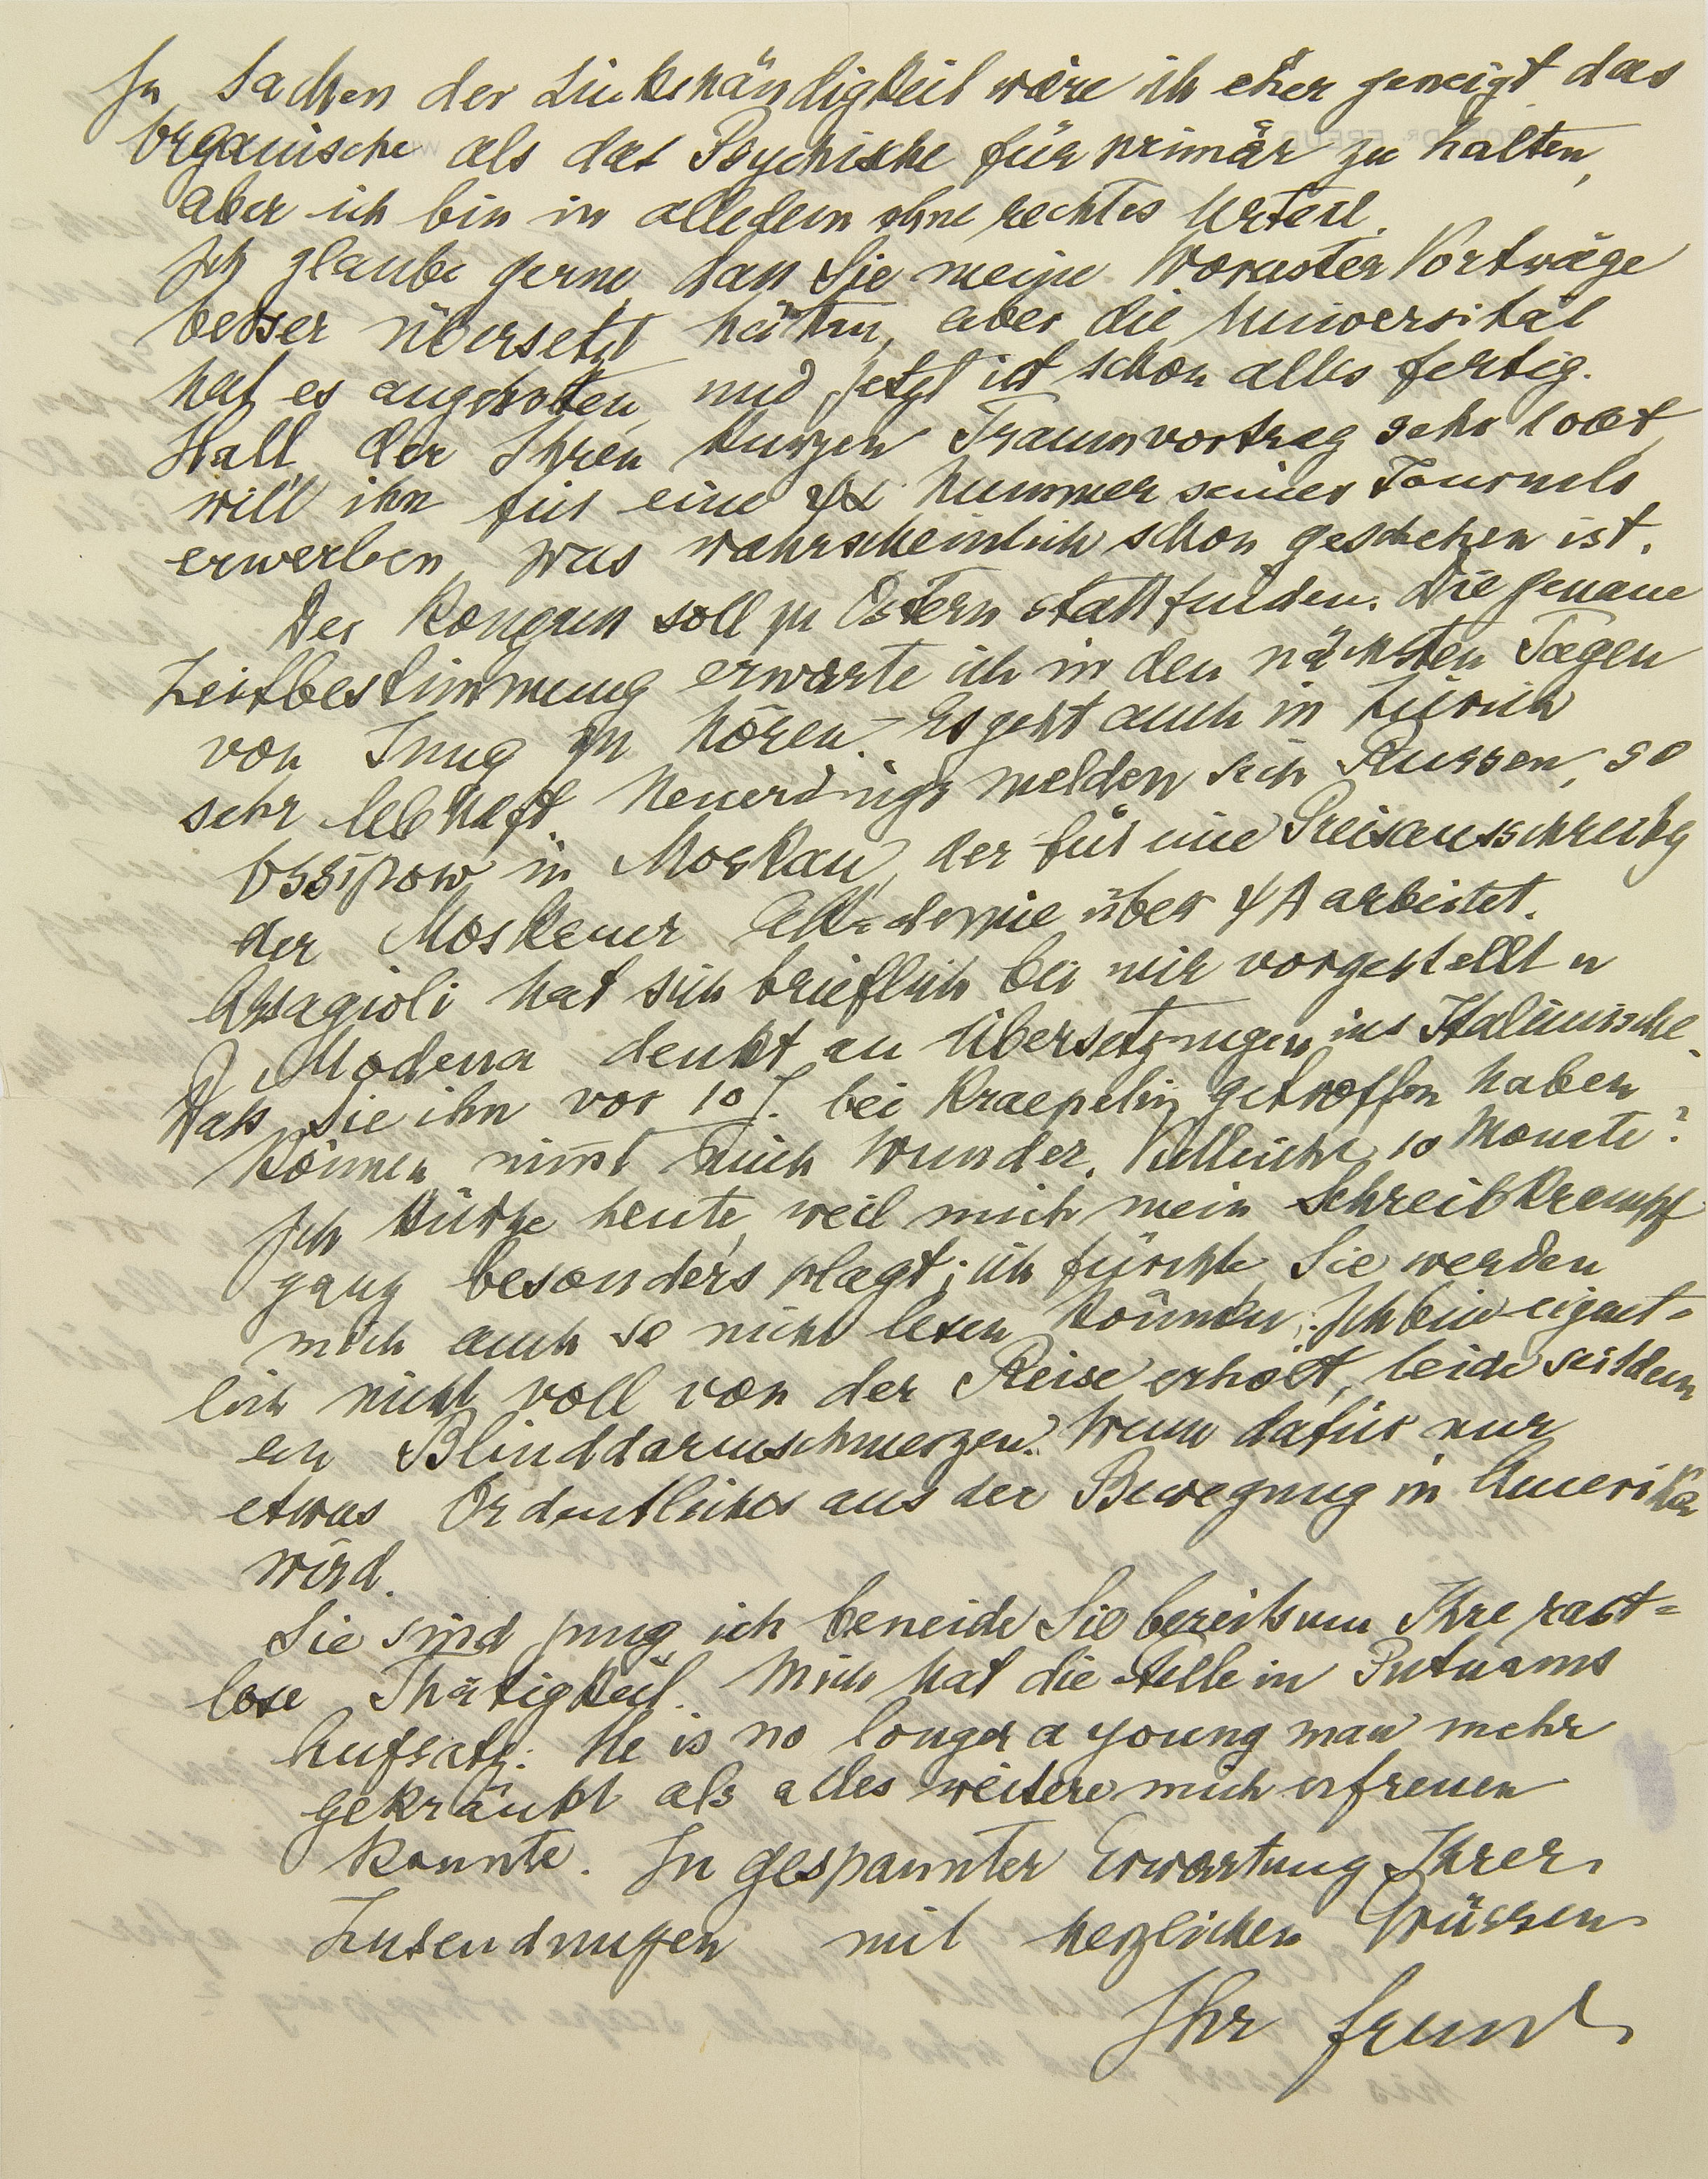 In Sachen der Linkshändigkeit wäre ich eher geneigt das
Organische als das Psychische für primär zu halten,
aber ich bin in alledem ohne rechtes Urteil.
Ich glaube gerne, daß Sie meine Worcester Vorträge
besser übersetzt hätten, aber die Universität
hat es angeboten, und jetzt ist schon alles fertig.
Hall, der Ihren kurzen Traumvortrag sehr lobt,
will ihn für eine ψα Nummer seines Journals
erwerben, was wahrscheinlich schon geschehen ist.
Der Kongreß soll zu Ostern stattfinden. Die genaue
Zeitbestimmung erwarte ich in den nächsten Tagen
von Jung zu hören. Es geht auch in Zürich
sehr lebhaft. Neuerdings melden sich Russen, so
Ossipow in Moskau, der für eine Preisausschreibg
der Moskauer Akademie über ψA arbeitet.
Assagioli hat sich brieflich bei mir vorgestellt u
Modena denkt an Übersetzungen ins Italienische.
Daß Sie ihn vor 10 J. bei Kraepelin getroffen haben
können, nim̅t mich Wunder. Vielleicht 10 Monate?
Ich kürze heute, weil mich mein Schreibkrampf
ganz besonders plagt; ich fürchte, Sie werden
mich auch so nicht lesen können. Ich bin eigent=
lich nicht voll von der Reise erholt, leide seitdem
an Blinddarmschmerzen. Wenn dafür nur
etwas Ordentliches aus der Bewegung in Amerika
wird.
Sie sind jung, ich beneide Sie bereits um Ihre rast=
lose Thätigkeit. Mich hat die Stelle in Putnams
Aufsatz: He is no longer a young man mehr
gekränkt als alles weitere mich erfreuen
konnte. In gespannter Erwartung Ihrer
Zusendungen mit herzlichen Grüssen
Ihr Freud